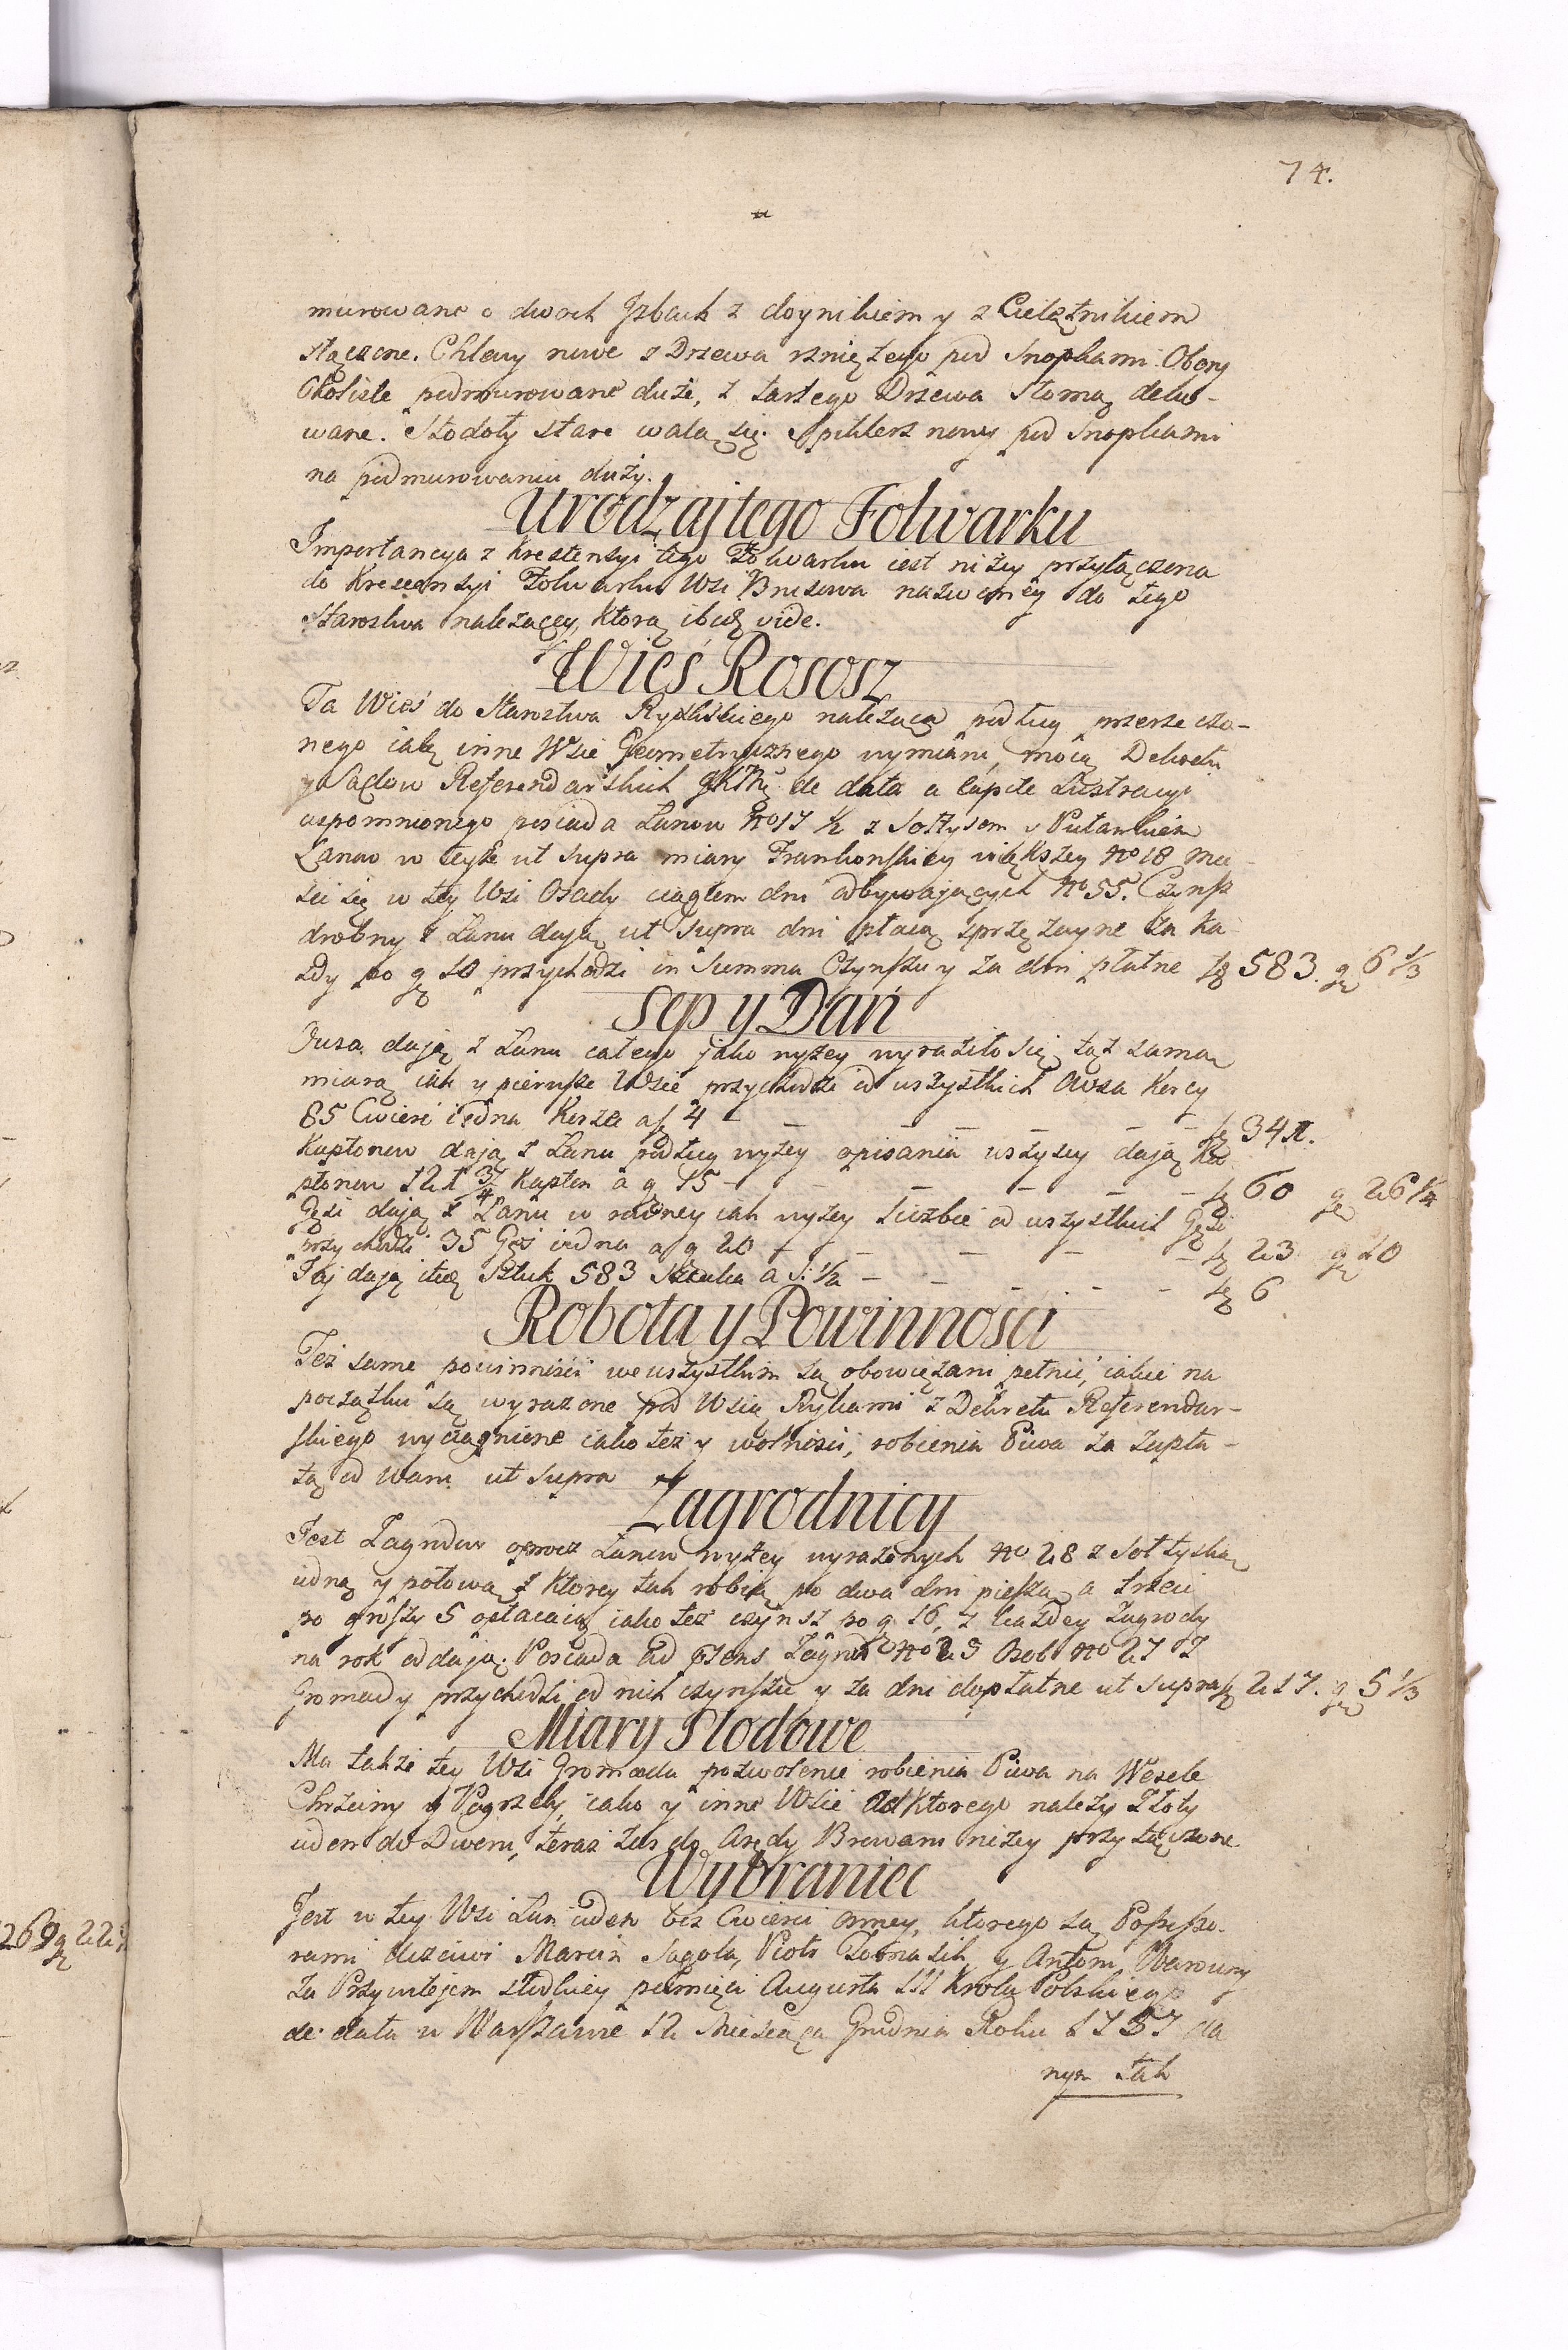 74.
murowane o dwoch Jzbach z doynikiem y z Cielętnikiem
złączone. Chlewy nowe z Drzewa rzniętego pod Snopkami. Obory
Okoliste podmurowane duże, z tartego Drzewa Słomą deko-
wane. Stodoły stare walą się. Spiklerz nowy pod Snopkami
na podmurowaniu duży.
Urodzaj tego Folwarku
Importancya z Krestensyi tego Folwarku iest niżey przyłączona
do Krescensyi Folwarku Wsi Brusowa nazwaney do tego
Starostwa należącey, ktorą ibid vide.
Wieś Rososz
Ta Wieś do Starostwa Ryckiego należąca podług przerzeczo-
nego iak inne Wsie Geometrycznego wymiaru, mocą Dekretu
Sądow Referendarskich de data a capite Lustracyi
wspomnionego posiada Łanow No 17 1/2 z Sołtysem
Łanow w teyże ut supra miary Frankonskiey większey No 18 Mie-
ści się w tey Wsi Osady ciągłem dni odbywających No 55. Czynsz
drobny z Łanu dają ut supra dni płacą sprzężayne za ka-
żdy po g 10 przychodzi in Summa Czynszu y za dni płatne 583. g 6 1/3
Sep y Dań
Owsa dają z Łanu całego jako wyżey wyraziło się tąż samą
miarą iak y pierwsze Wsie przychodzi od wszystkich Owsa Korcy
85 Cwierć iedna Korzec a 4 - - - - - - 341.
Kapłonow dają z Łanu podług wyżey opisania wszyscy dają Ka-
płonow 121 3/4 Kapłon a g 15 - - - - - 60 g 26 1/4
Gęsi dają z Łanu w rowney iak wyżey liczbie od wszystkich Gęsi
przychodzi 35 Gęś iedna a g 20 - - - - - 23 g 10
Jaj dają Sztuk 583 Sztuka a 1/2 - - - - - 6
Robota y Powinności
Też same powinności we wszystkim są obowiązani pełnić, iakie na
początku są wyrażone pod Wsią Rykami z Dekretu Referendar-
skiego wyciągnione iako też y wolności, robienia Piwa za zapła-
tą od Waru ut supra
Zagrodnicy
Jest Zagrodow oprocz Łanow wyżey wyrażonych No 28 z Sołtyską
iedną y połową z ktorey tak robią po dwa dni pieszą a trzeci
po groszy 5 opłacaią iako też czynsz po g 16, z każdey Zagrody
na rok oddają. Posiada ad Zagrod No 25 Osob No 27 Z
Gromady przychodzi od nich czynszu y za dni dopłatne ut supra 217. g 5 1/3
Miary Słodowe
Ma także tey Wsi Gromada pozwolenie robienia Piwa na Wesele
Chrzciny y Pogrzeby, iako y inne Wsie od ktorego należy Złoty
ieden do Dworu, teraz zas do Arędy Browaru niżey przyłączone
Wybraniec
Jest w tey Wsi Łan ieden bez Cwierci ktorego są Possesso-
rami uczciwi Marcin Sągoła, Piotr y Antoni
za Przywilejem słodkiey pamięci Augusta III Krola Polskiego
de data w Warszawie 12 Miesiąca Grudnia Roku 1757 da
nym tak
269 g 22